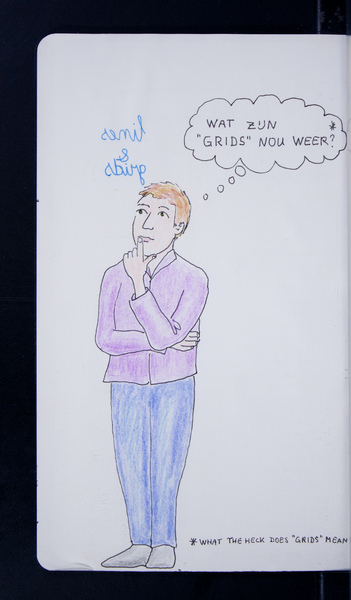 lines
&
grids
WAT ZIJN *
"GRIDS" NOU WEER?
* WHAT THE HECK DOES "GRIDS" MEAN